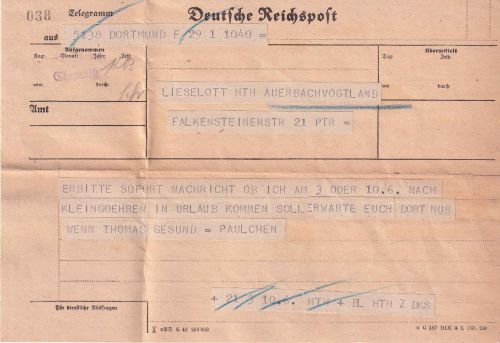 038
Telegramm
Deutsche Reichspost
aus
5138 DORTMUND F 29 1 1040 =
Aufgenommen
Tag: Monat: Jahr: Zeit:
von: durch:
Chemnitz
Übermittelt
Tag: Zeit:
an: durch:
LIESELOTT HTH AUERBACHVOGTLAND
FALKENSTEINERSTR 21 PTR =
Amt
ERBITTE SOFORT NACHRICHT OB ICH AM 3 ODER 10.6. NACH
KLEINGOEHREN IN URLAUB KOMMEN SOLL ERWARTE EUCH DORT NUR
WENN THOMAS GESUND = PAULCHEN
+ 21 3 10.6. HTH + BL HTH Z DKS
Für dienstliche Rückfragen